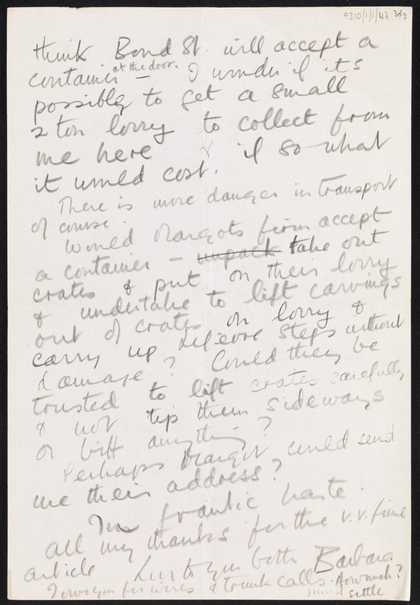 think Bond St. will accept a
container at the door – I wonder if its
possibly to get a small
2 ton lorry to collect from
me here & if so what
it would cost.
There is more danger in transport
of course.
Would Margots firm accept
a container – unpack take out
crates & put on their lorry
& undertake to lift carvings
out of crates on lorry &
carry up steps without
damage? Could they be
trusted to lift crates carefully
& not tip them sideways
or biff anything?
Perhaps Margot could send
me their address?
In frantic haste.
all my thanks for the v.v. fine
article Luv to you both Barbara
I owe you for wires & trunk calls. How much?
settle